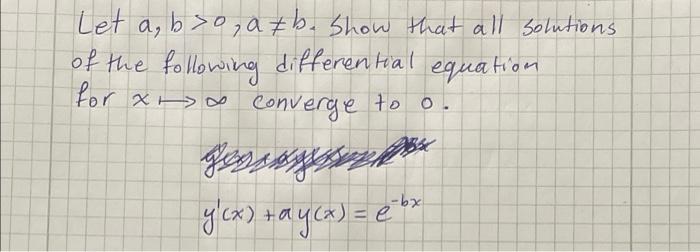 Let a, b > 0, a ≠ b. Show that all solutions
of the following differential equation
for x ↦ ∞ converge to 0.
y'(x) + ay(x) = e^{-bx}